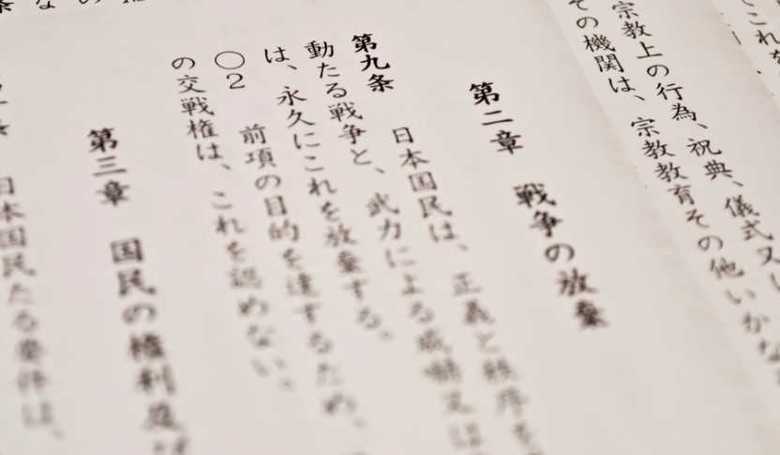 これを
宗教上の行為、祝典、儀式又
その機関は、宗教教育その他いかな
第二章　戦争の放棄
第九条　日本国民は、正義と秩序を
動たる戦争と、武力による威嚇又は
は、永久にこれを放棄する。
○２　前項の目的を達するため、
の交戦権は、これを認めない。
第三章　国民の権利及び
条　日本国民たる要件は、